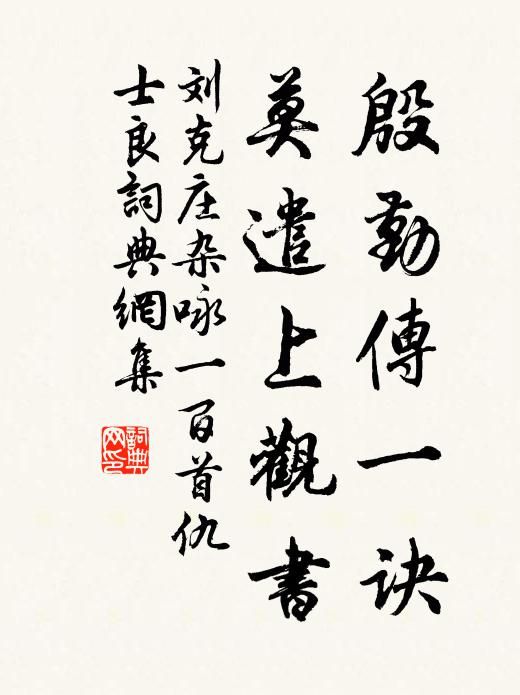 殷勤傳一訣
莫遣上觀書
刘克庄杂咏一百首仇
士良詞典網集
詞典網印